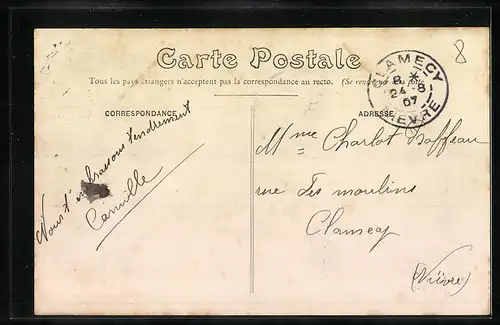 8
Carte Postale
Tous les pays étrangers n'acceptent pas la correspondance au recto. (Se renseigner à la poste)
CLAMECY
8 *
24 -8
07
NIEVRE
CORRESPONDANCE
ADRESSE
Nous t'embrassons tendrement
Camille
Mme Charlot
rue des moulins
Clamecy
(Nièvre)